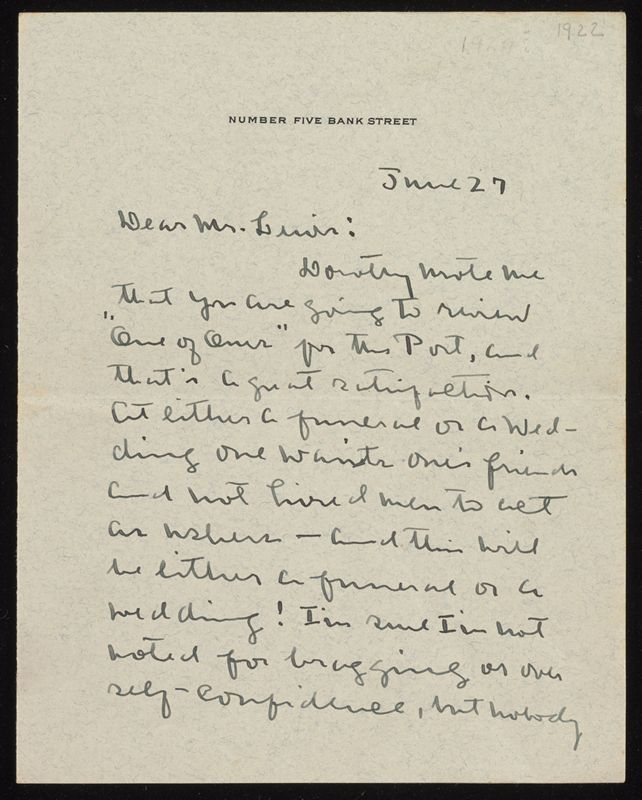 1922
NUMBER FIVE BANK STREET
June 27
Dear Mr. Lewis:
Dorothy wrote me
that you are going to review
"One of Ours" for the Post, and
that's a great satisfaction.
At either a funeral or a wed-
ding one wants one's friends
and not hired men to act
as ushers — and this will
be either a funeral or a
wedding! I'm sure I'm not
noted for bragging or over
self-confidence, but nobody